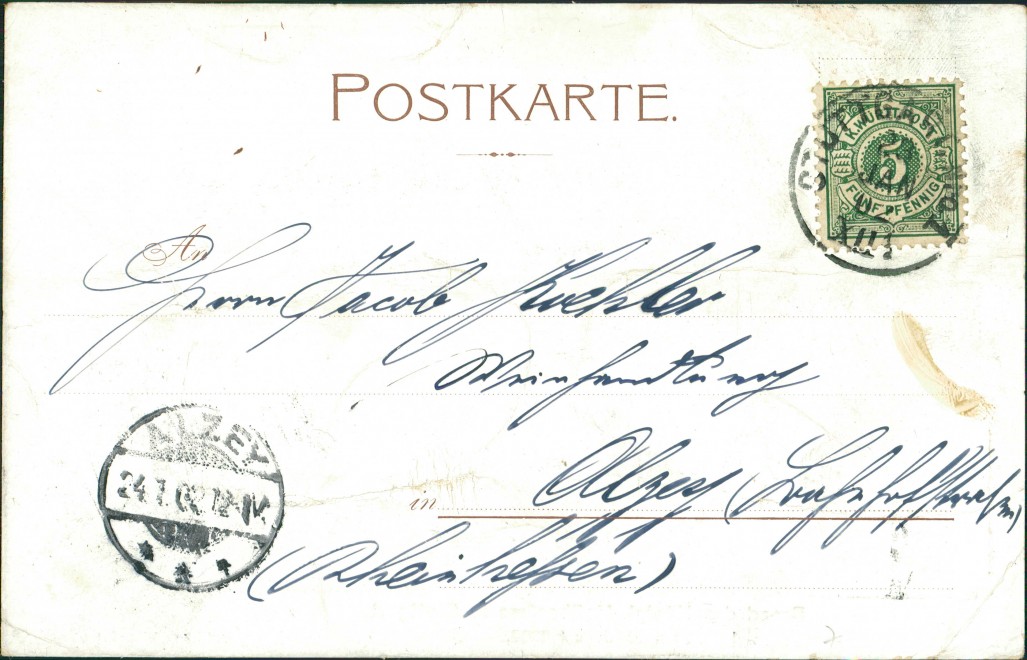 POSTKARTE.
K. WÜRTT. POST
5
FÜNF PFENNIG
STUTTGART
JAN
An
Herrn Jacob Koehler
Weinhandlung
ALZEY
24.1.02.12-1V.
in Alzey (Bahnhofstraße)
(Rheinhessen)